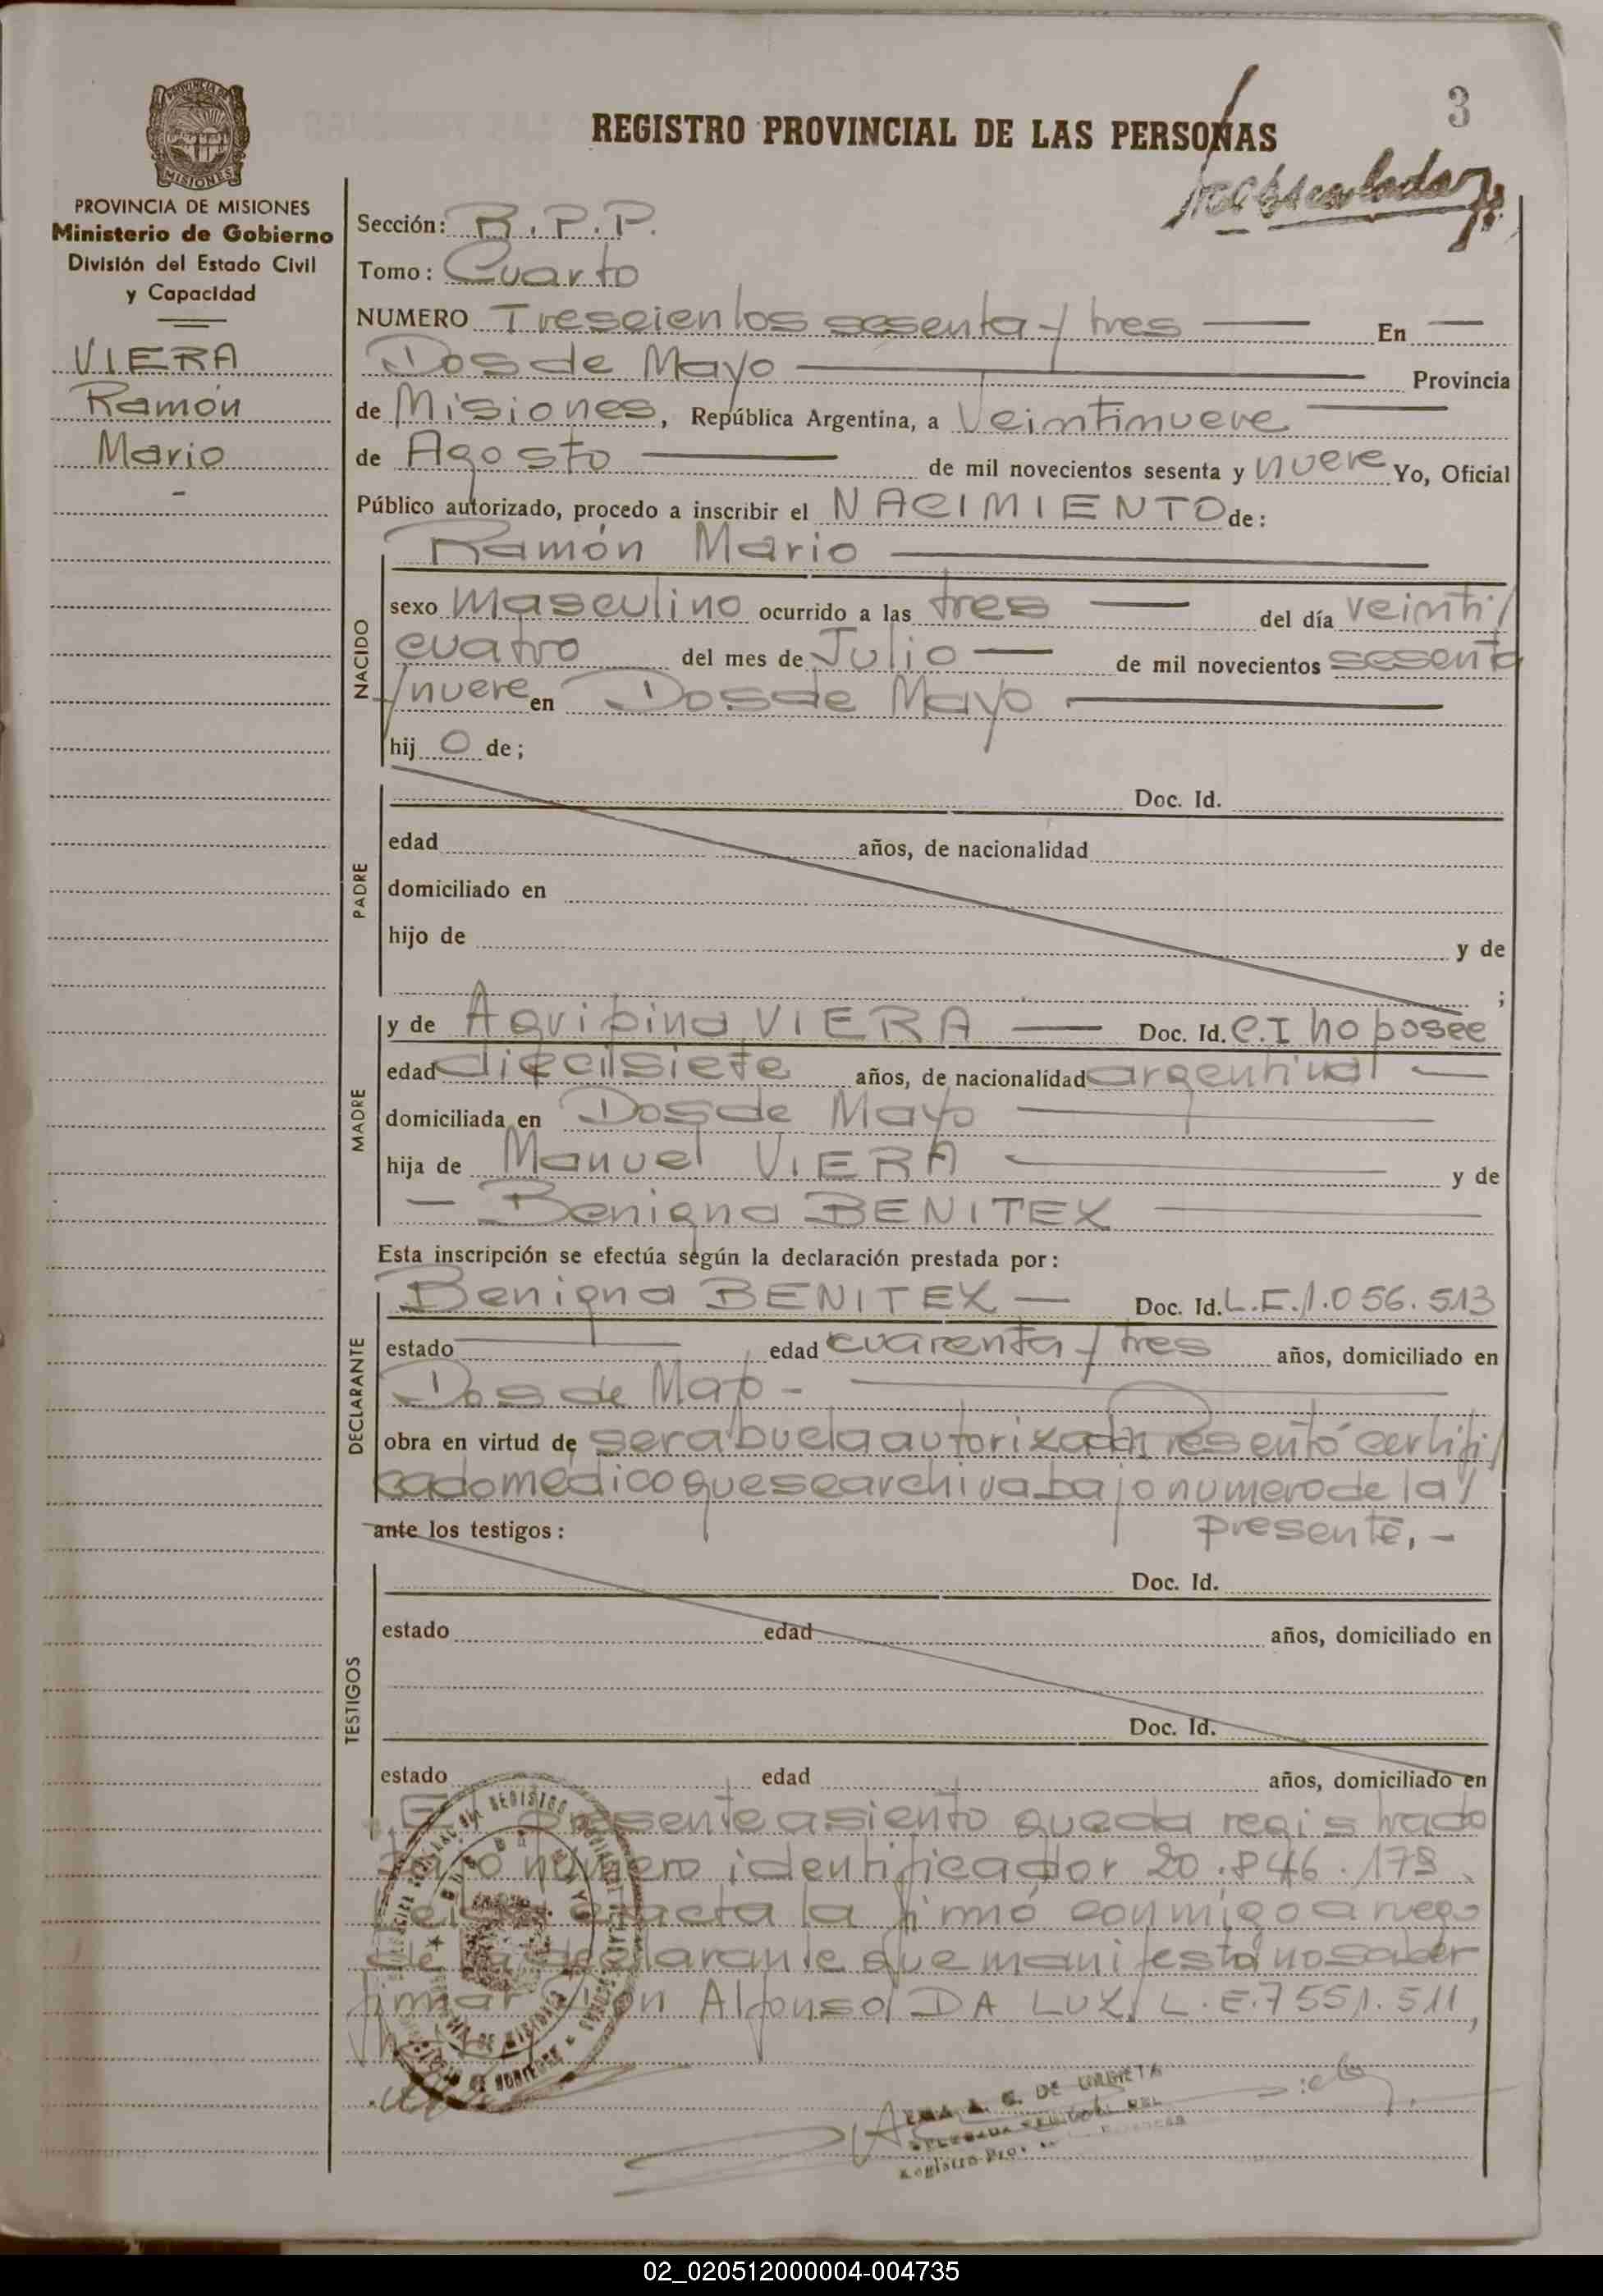 REGISTRO PROVINCIAL DE LAS PERSONAS
3
PROVINCIA DE MISIONES
Ministerio de Gobierno
División del Estado Civil
y Capacidad
VIERA
Ramón
Mario
Sección: R.P.P.
Tomo: Cuarto
NUMERO Trescientos sesenta y tres En
Dos de Mayo Provincia
de Misiones, República Argentina, a Veintinueve
de Agosto de mil novecientos sesenta y nueve Yo, Oficial
Público autorizado, procedo a inscribir el NACIMIENTO de:
NACIDO
Ramón Mario
sexo Masculino ocurrido a las tres del día veinti/
cuatro del mes de Julio de mil novecientos sesenta
y nueve en Dos de Mayo
hij o de;
PADRE
Doc. Id.
edad años, de nacionalidad
domiciliado en
hijo de y de
;
MADRE
y de Agripina VIERA Doc. Id. C.I no posee
edad diecisiete años, de nacionalidad argentina
domiciliada en Dos de Mayo
hija de Manuel VIERA y de
Benigna BENITEZ
Esta inscripción se efectúa según la declaración prestada por:
DECLARANTE
Benigna BENITEZ Doc. Id. L.E.1.056.513
estado edad cuarenta y tres años, domiciliado en
Dos de Mayo -
obra en virtud de ser abuela autorizada Presentó certifi/
cado médico que se archiva bajo numero de la/
presente.-
ante los testigos:
TESTIGOS
Doc. Id.
estado edad años, domiciliado en
Doc. Id.
estado edad años, domiciliado en
El presente asiento queda registrado
bajo número identificador 20.846.179
Leída el acta la firmó conmigo a ruego
de la declarante que manifestó no saber
firmar Don Alfonso DA LUZ, L.E.7551.511,
DE URBIETA
02_020512000004-004735